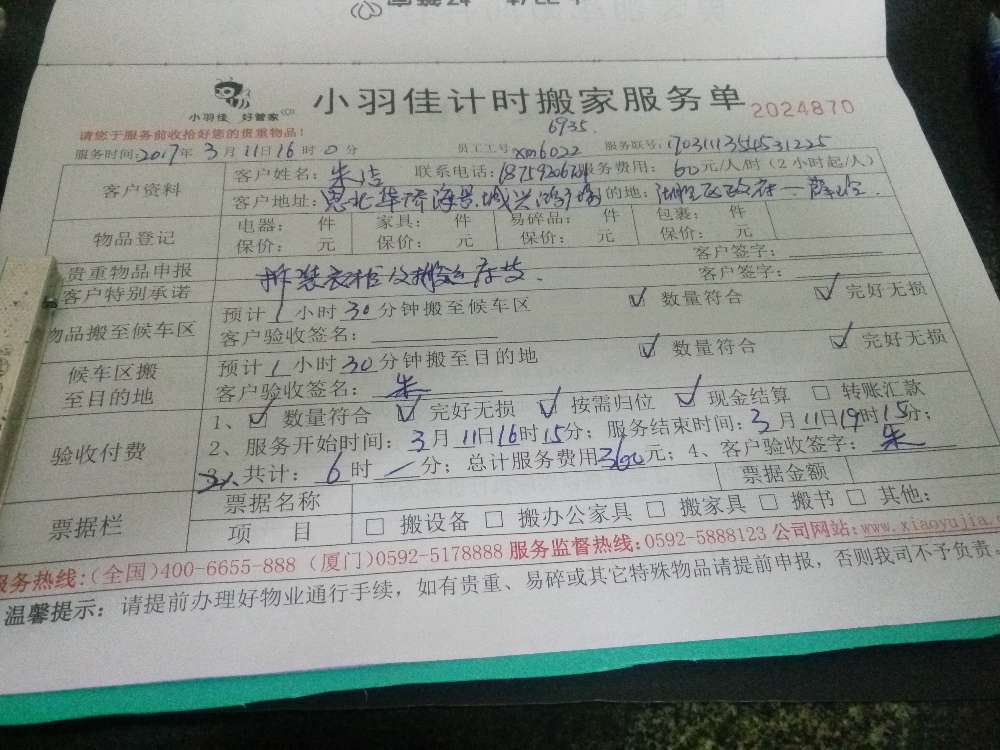 小羽佳 好管家
小羽佳计时搬家服务单 2024870
6935.
请您于服务前收拾好您的贵重物品!
服务时间:2017年 3月11日16时0分 员工工号 xm6022 服务联号:1703111354531225
客户资料 客户姓名:朱洁 联系电话: 服务费用:60元/人/时(2小时起/人)
客户地址: 华侨海景城 目的地:湖里区政府
物品登记 电器: 件 家具: 件 易碎品: 件 包裹: 件
保价: 元 保价: 元 保价: 元 保价: 元
贵重物品申报 客户签字:
客户特别承诺 拆装衣柜及搬运 客户签字:
物品搬至候车区 预计1小时30分钟搬至候车区 ☑ 数量符合 ☑ 完好无损
客户验收签名:
候车区搬至目的地 预计1小时30分钟搬至目的地 ☑ 数量符合 ☑ 完好无损
客户验收签名:朱
验收付费 1、☑ 数量符合 ☑ 完好无损 ☑ 按需归位 ☑ 现金结算 □ 转账汇款
2、服务开始时间:3月11日16时15分;服务结束时间:3月11日19时15分;
2人 共计:6时一分;总计服务费用360元;4、客户验收签字:朱
票据栏 票据名称 票据金额
项 目 □ 搬设备 □ 搬办公家具 □ 搬家具 □ 搬书 □ 其他:
服务热线:(全国)400-6655-888 (厦门)0592-5178888 服务监督热线:0592-5888123 公司网站:www.xiaoyujia.
温馨提示:请提前办理好物业通行手续,如有贵重、易碎或其它特殊物品请提前申报,否则我司不予负责。